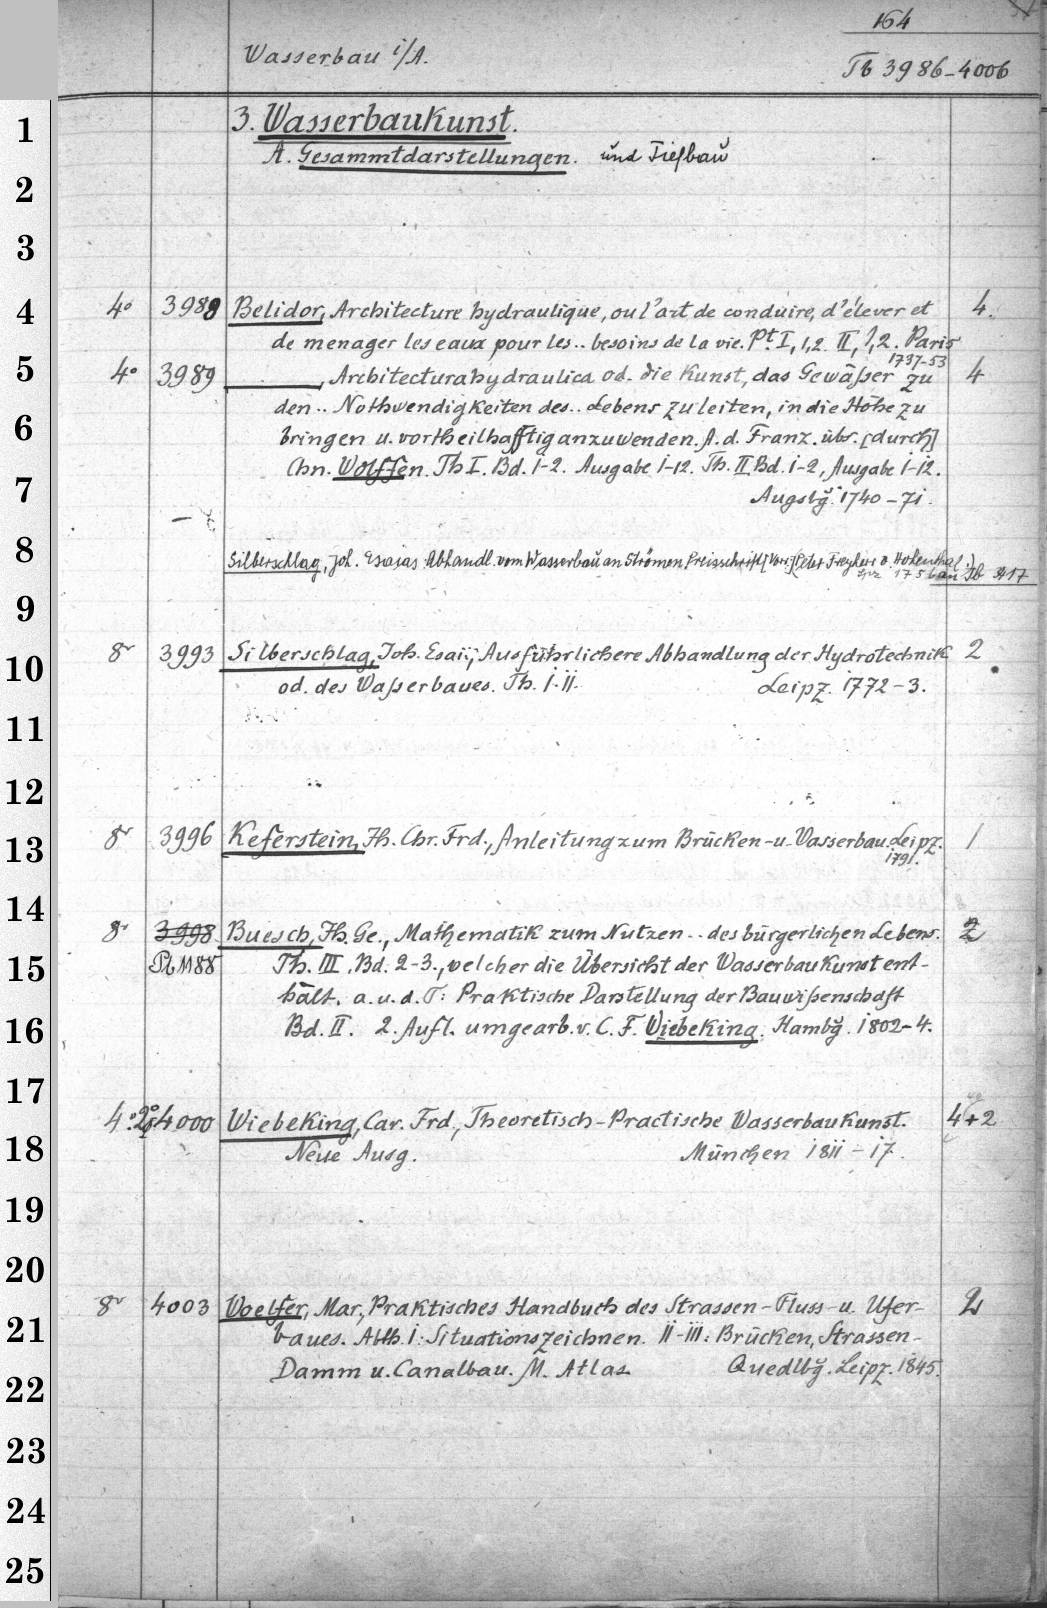 164
Wasserbau i/A.
Tb 3986-4006
1
3. Wasserbaukunst.
A. Gesammtdarstellungen. und Tiefbau
2
3
4
4° 3988 Belidor, Architecture hydraulique, ou l'art de conduire, d'élever et 4.
de menager les eaux pour les .. besoins de la vie. Pt. I, 1,2. II, 1,2. Paris
1737-53
5
4° 3989 ______, Architectura hydraulica od. die Kunst, das Gewässer zu 4
den .. Nothwendigkeiten des .. Lebens zu leiten, in die Höhe zu
6
bringen u. vortheilhafftig anzuwenden. A. d. Franz. übs. [durch]
Chn. Wolffen. Th I. Bd. 1-2. Ausgabe 1-12. Th. II Bd. 1-2, Ausgabe 1-12.
7
Augsbg. 1740-71.
8
Silberschlag, Joh. Esaias: Abhandl. vom Wasserbau an Strömen. Preisschrift [Vorr.] (Peter Freyherr v. Hohenthal.)
Lpz 1756 an Tb 3417
9
10
8° 3993 Silberschlag, Joh. Esai., Ausführlichere Abhandlung der Hydrotechnik 2
od. des Wasserbaues. Th. I-II. Leipz. 1772-3.
11
12
13
8° 3996 Keferstein, Jh. Chr. Frd., Anleitung zum Brücken- u. Wasserbau. Leipz. 1
1791.
14
8° 3998 Buesch, Jh. Ge., Mathematik zum Nutzen .. des bürgerlichen Lebens. 2
15
1188 Th. III, Bd. 2-3., welcher die Übersicht der Wasserbaukunst ent-
hält. a. u. d. T: Praktische Darstellung der Bauwissenschaft
16
Bd. II. 2. Aufl. umgearb. v. C. F. Wiebeking. Hambg. 1802-4.
17
4°. 2° 4000 Wiebeking, Car. Frd., Theoretisch-Practische Wasserbaukunst. 4+2
18
Neue Ausg. München 1811-17.
19
20
21
8° 4003 Woelfer, Mar., Praktisches Handbuch des Strassen- Fluss- u. Ufer- 2
baues. Abth. I: Situationszeichnen. II-III: Brücken, Strassen-
22
Damm u. Canalbau. M. Atlas Quedlbg. Leipz. 1845.
23
24
25